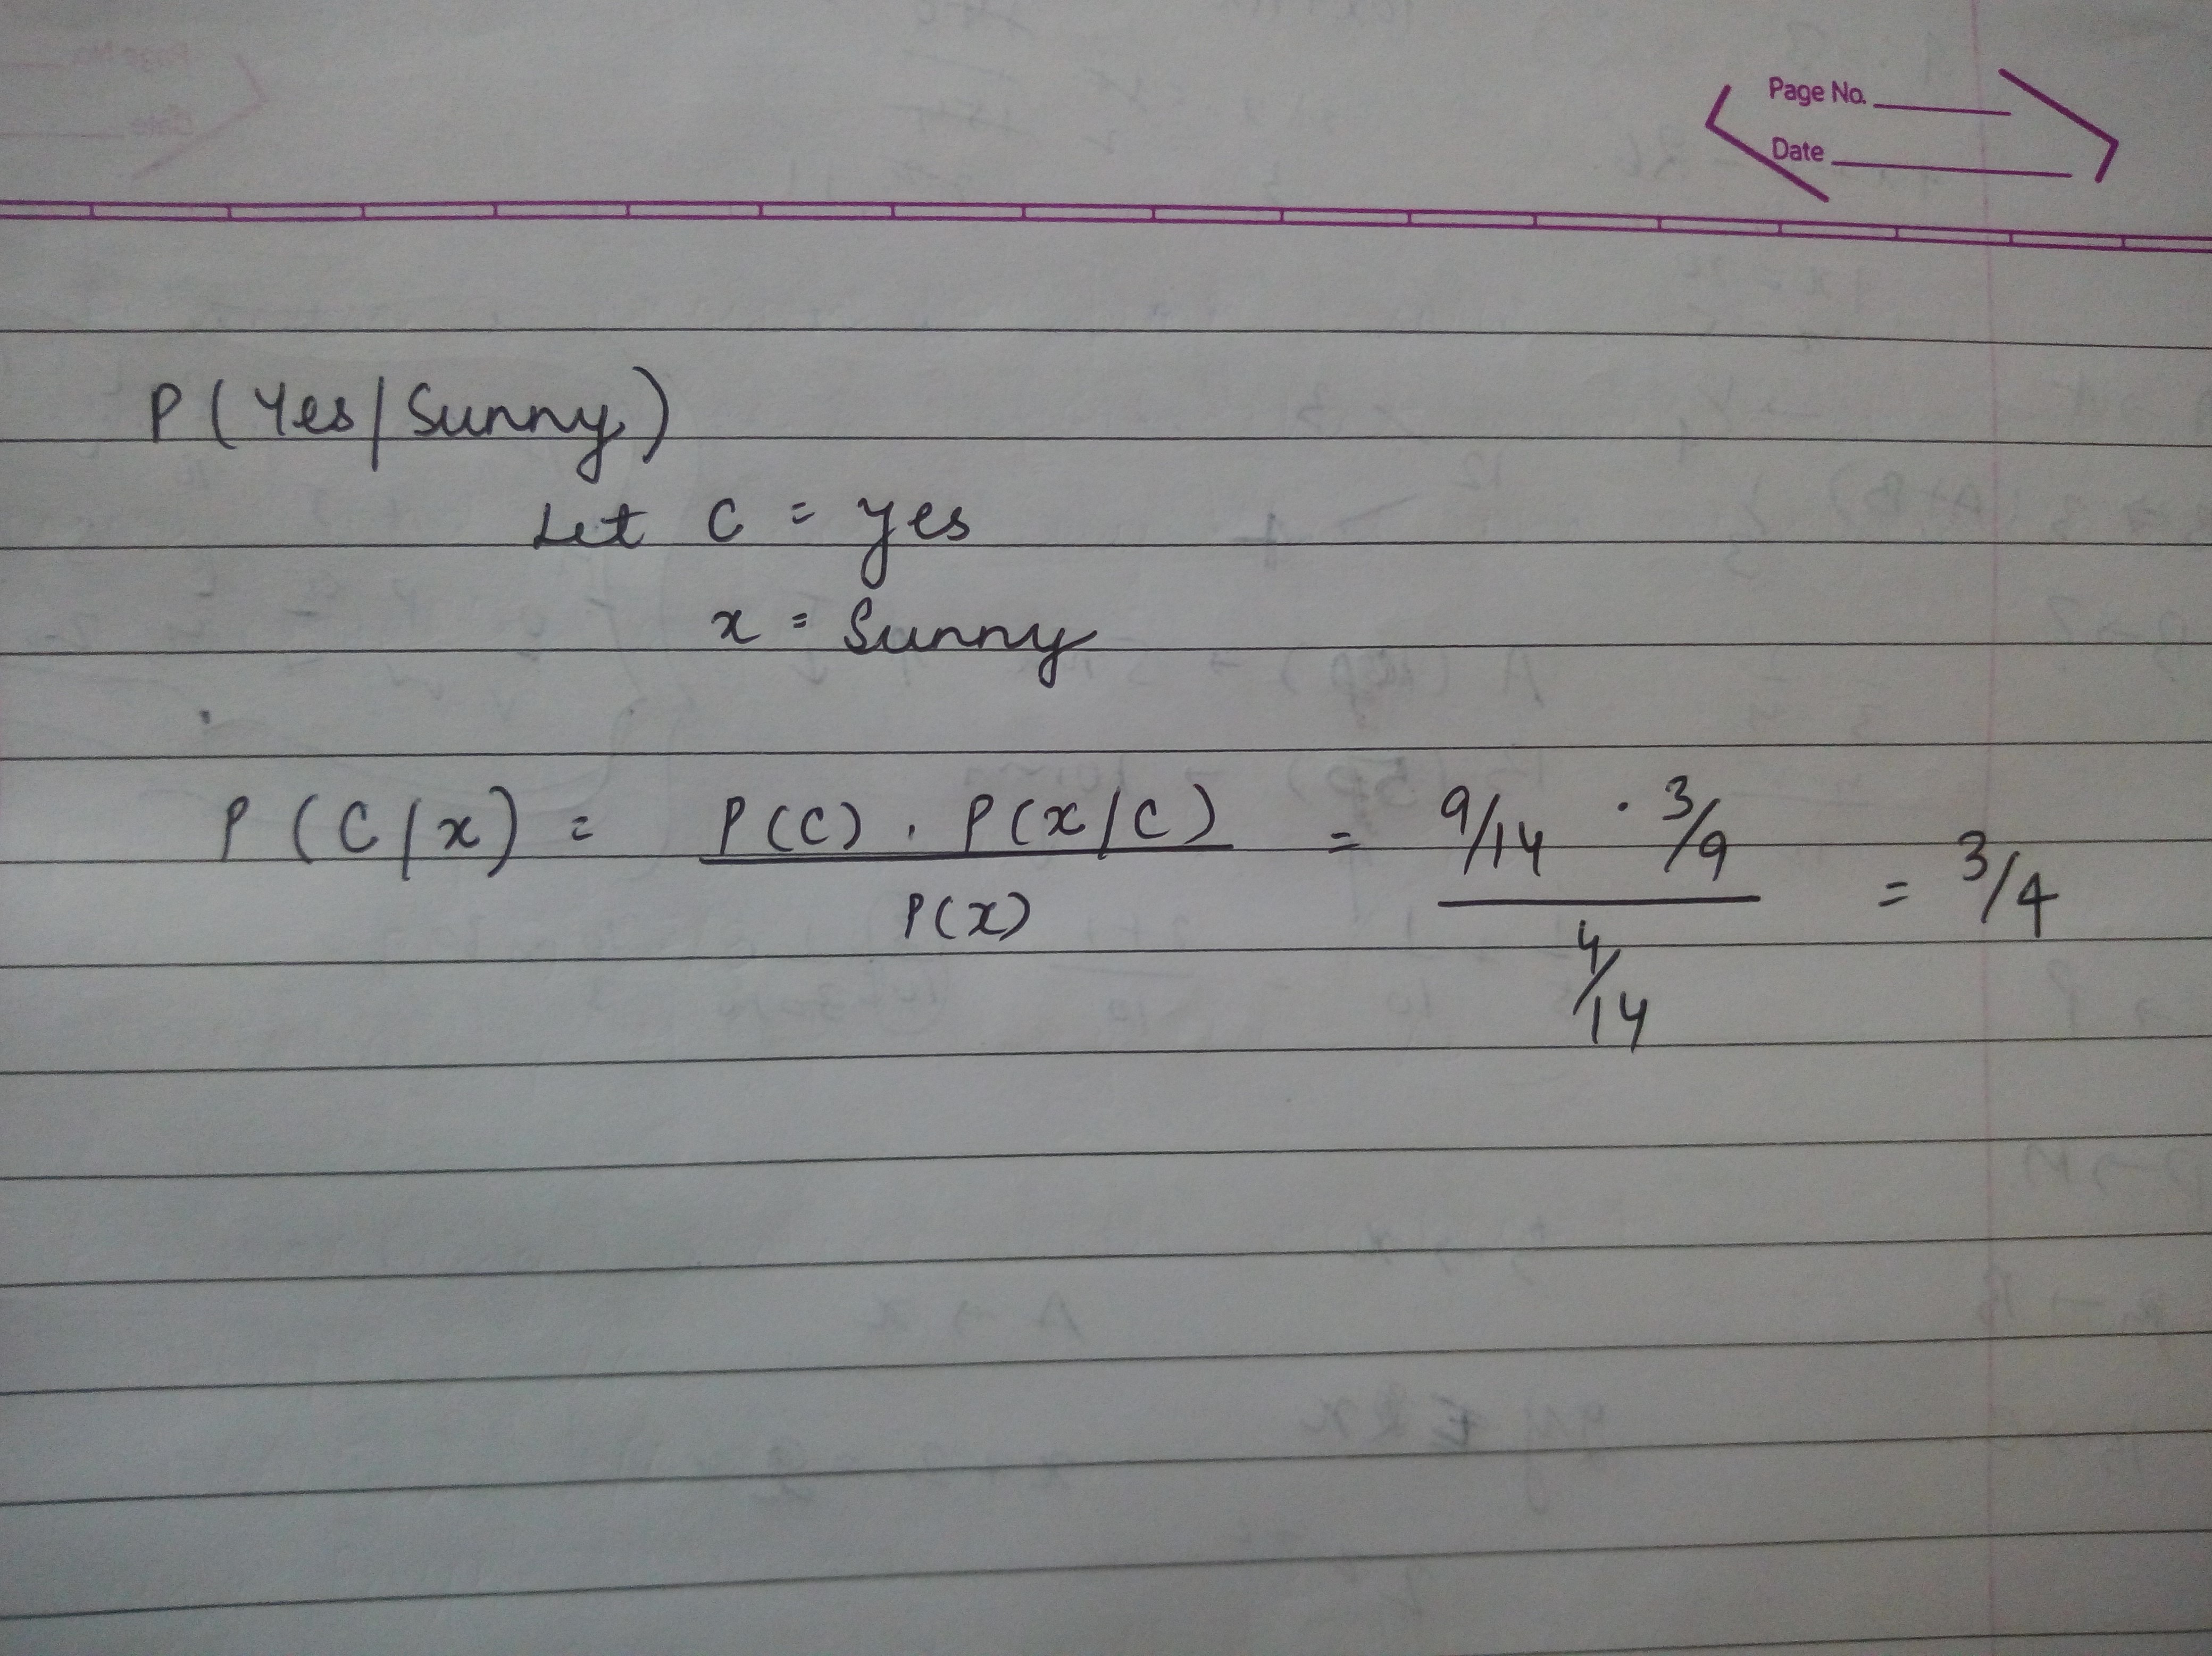 Page No.
Date
P(Yes/Sunny)
Let C = yes
x = Sunny
P(C/x) = P(C) . P(x/C) / P(x) = 9/14 . 3/9 / 4/14 = 3/4